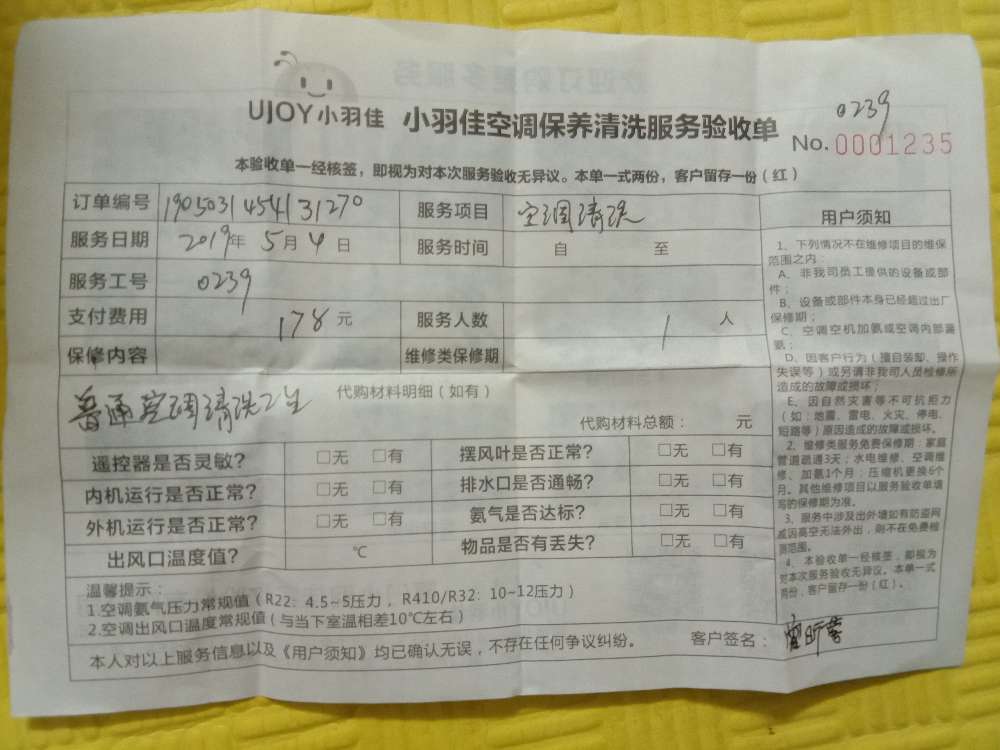 UJOY小羽佳 小羽佳空调保养清洗服务验收单
0239
No. 0001235
本验收单一经核签，即视为对本次服务验收无异议。本单一式两份，客户留存一份（红）
订单编号 1905031454131270 服务项目 空调清洗
服务日期 2019年5月4日 服务时间 自 至
服务工号 0239
支付费用 178元 服务人数 1人
保修内容 维修类保修期
代购材料明细（如有）
普通空调清洗2台
代购材料总额： 元
遥控器是否灵敏？ □无 □有 摆风叶是否正常？ □无 □有
内机运行是否正常？ □无 □有 排水口是否通畅？ □无 □有
外机运行是否正常？ □无 □有 氨气是否达标？ □无 □有
出风口温度值？ ℃ 物品是否有丢失？ □无 □有
温馨提示：
1.空调氨气压力常规值（R22：4.5~5压力，R410/R32：10~12压力）
2.空调出风口温度常规值（与当下室温相差10℃左右）
本人对以上服务信息以及《用户须知》均已确认无误，不存在任何争议纠纷。
客户签名：
用户须知
1、下列情况不在维修项目的维保
范围之内：
A、非我司员工提供的设备或部
件；
B、设备或部件本身已经超过出厂
保修期；
C、空调空机加氨或空调内部漏
氨；
D、因客户行为（擅自装卸、操作
失误等）或另请非我司人员检修所
造成的故障或损坏；
E、因自然灾害等不可抗拒力
（如：地震、雷电、火灾、停电、
短路等）原因造成的故障或损坏。
2、维修类服务免费保修期：家庭
管道疏通3天；水电维修、空调维
修、加氨1个月；压缩机更换6个
月。其他维修项目以服务验收单填
写的保修期为准。
3、服务中涉及出外墙如有防盗网
或因高空无法外出，则不在免费检
测范围。
4、本验收单一经核签，即视为
对本次服务验收无异议。本单一式
两份，客户留存一份（红）。